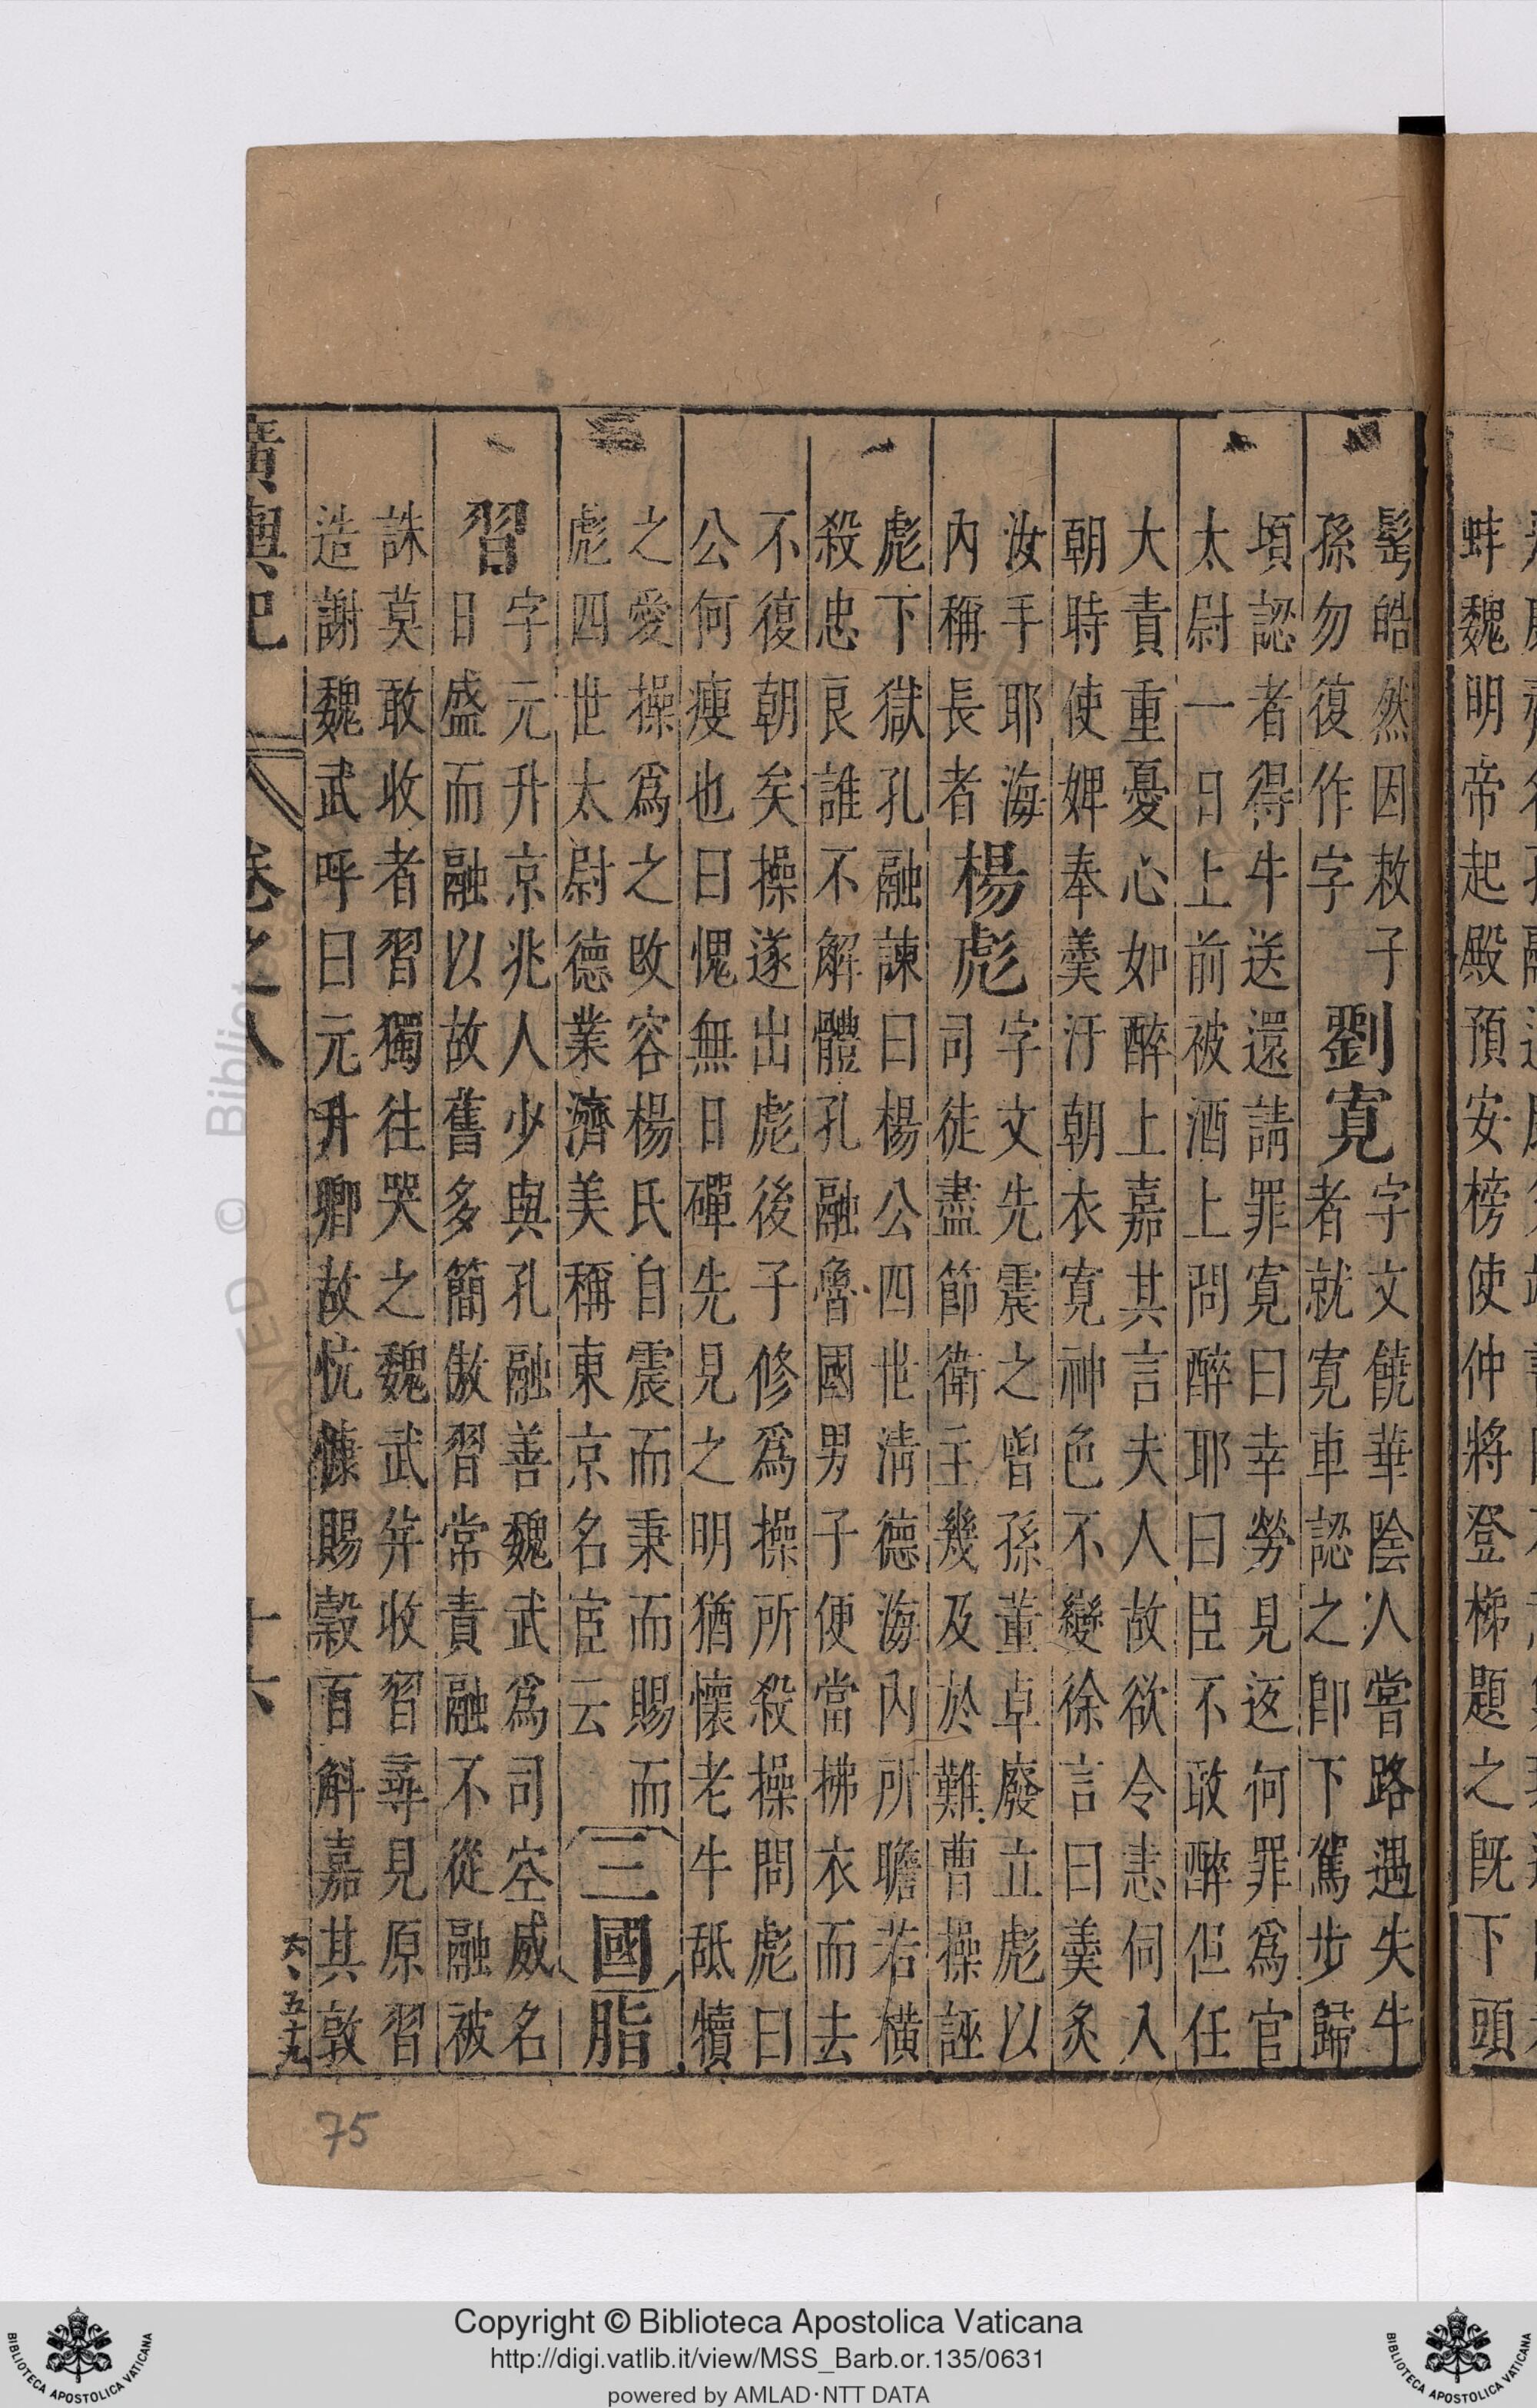 蚌魏明帝起殿預安榜使仲將登梯題之旣下頭
髩皓然因敕子
孫勿復作字
劉寛
字文饒華陰人嘗路遇失牛
者就寛車認之卽下駕步歸
頃認者得牛送還請罪寛曰幸勞見返何罪爲官
太尉一日上前被酒上問醉耶曰臣不敢醉但任
大責重憂心如醉上嘉其言夫人故欲令恚伺入
朝時使婢奉羹汙朝衣寛神色不變徐言曰羹炙
汝手耶海
內稱長者
楊彪
字文先震之曾孫董卓廢立彪以
司徒盡節衛主幾及於難曹操誣
彪下獄孔融諫曰楊公四世淸德海內所瞻若橫
殺忠良誰不解體孔融魯國男子便當拂衣而去
不復朝矣操遂出彪後子修爲操所殺操問彪曰
公何瘦也曰愧無日磾先見之明猶懷老牛舐犢
之愛操爲之改容楊氏自震而秉而賜而
彪四世太尉德業濟美稱東京名宦云
三國
脂
習
字元升京兆人少與孔融善魏武爲司空威名
日盛而融以故舊多簡傲習常責融不從融被
誅莫敢收者習獨往哭之魏武并收習尋見原習
造謝魏武呼曰元升卿故忼慷賜穀百斛嘉其敦
廣輿記
卷之八
十六
75
Copyright © Biblioteca Apostolica Vaticana
http://digi.vatlib.it/view/MSS_Barb.or.135/0631
powered by AMLAD·NTT DATA
BIBLIOTECA APOSTOLICA VATICANA
BIBLIOTECA APOSTOLICA VATICANA